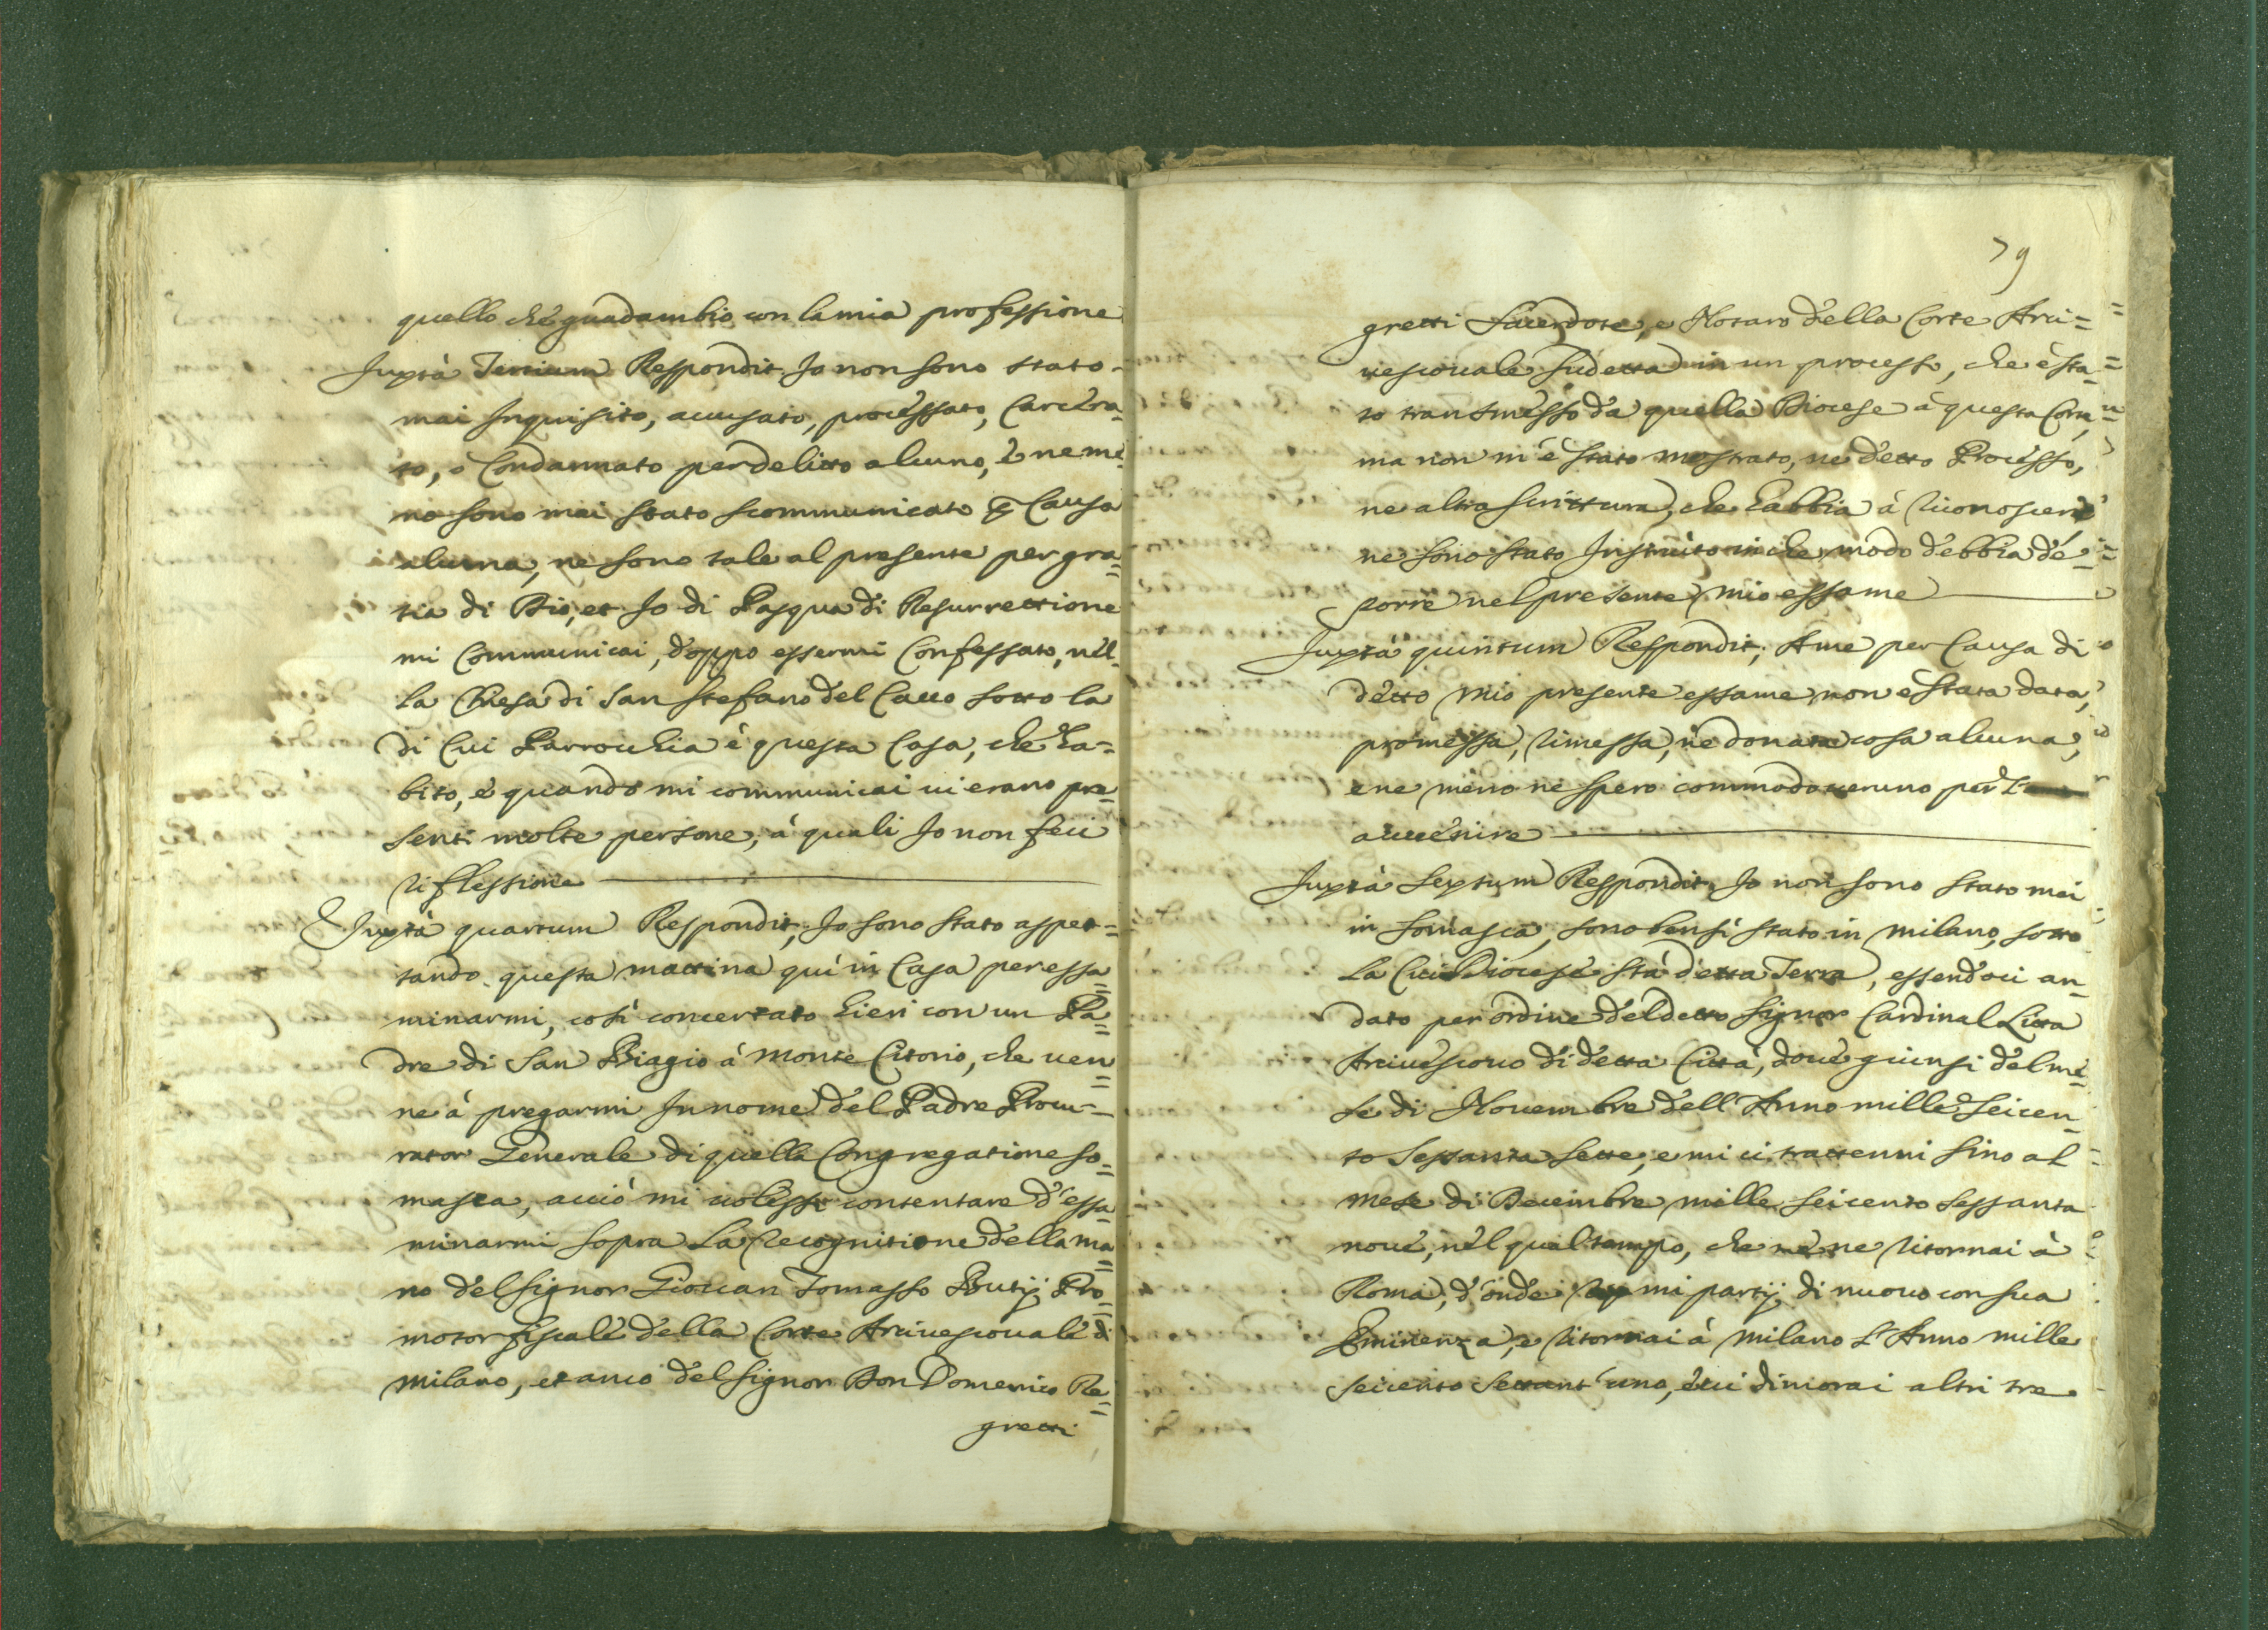 quello che guadambio con la mia professione
Juxtà Tertium Respondit Io non sono stato
mai Inquisito, accusato, processato, Carcera=
to, ò Condannato per delitto alcuno, è ne me=
no sono mai stato scommunicato p Causa
alcuna, ne sono tale al presente per gra=
tia di Dio, et Io di Pasqua di Resurrettione
mi Communicai, doppo essermi Confessato, nél=
la Chiesa di San Stefano del Cacco sotto la
di Cui Parrochia è questa Casa, che ha=
bito, è quando mi communicai ui erano pre=
senti molte persone, à quali Io non feci
riflessione
Juxtà quartum Respondit, Io sono stato aspet=
tando questa mattina qui in Casa per essa=
minarmi, così concertato hieri con un Pa=
dre di San Biagio à Monte Citorio, che uen=
ne à pregarmi In nome del Padre Procu=
rator Generale di quella Congregatione so=
masca, acciò mi uolessi contentare d'essa=
minarmi sopra la recognitione della ma=
no del Signor Giouan Tomasso Butij Pro=
motor fiscale della Corte Arciuescouale di
Milano, et anco del Signor Don Domenico Re=
gretti
79
gretti Sacerdote, e Notaro della Corte Arci=
uescouale sudetta in un processo, che è sta=
to transmesso da quella Diocese à questa Corte,
ma non m'è stato mostrato, ne detto Processo,
ne altra scrittura, che habbia à riconoscere
ne sono stato Instruito in che modo debbia de=
porre nel presente mio essame
Juxtà quintum Respondit, A me per Causa di
detto mio presente essame non è stata data,
promessa, rimessa, ne donata cosa alcuna,
e ne meno ne spero commodo ueruno per l'
auuenire
Juxtà Sextum Respondit, Io non sono stato mai
in Somasca, sono bensì stato in Milano, sotto
la Cui Diocese stà detta Terra, essendoci an=
dato per ordine del detto Signor Cardinal Litta
Arciuescouo di detta Città, doue giunsi del me=
se di Nouembre dell'Anno mille seicen=
to sessanta sette, e mi ci trattenni sino al
mese di Decembre mille seicento sessanta
noue, nel qual tempo, che me ne ritornai à
Roma, d'onde mi partij di nuouo con sua
Eminenza, e ritornai à Milano l'Anno mille
seicento settant'uno, è ui dimorai altri tre